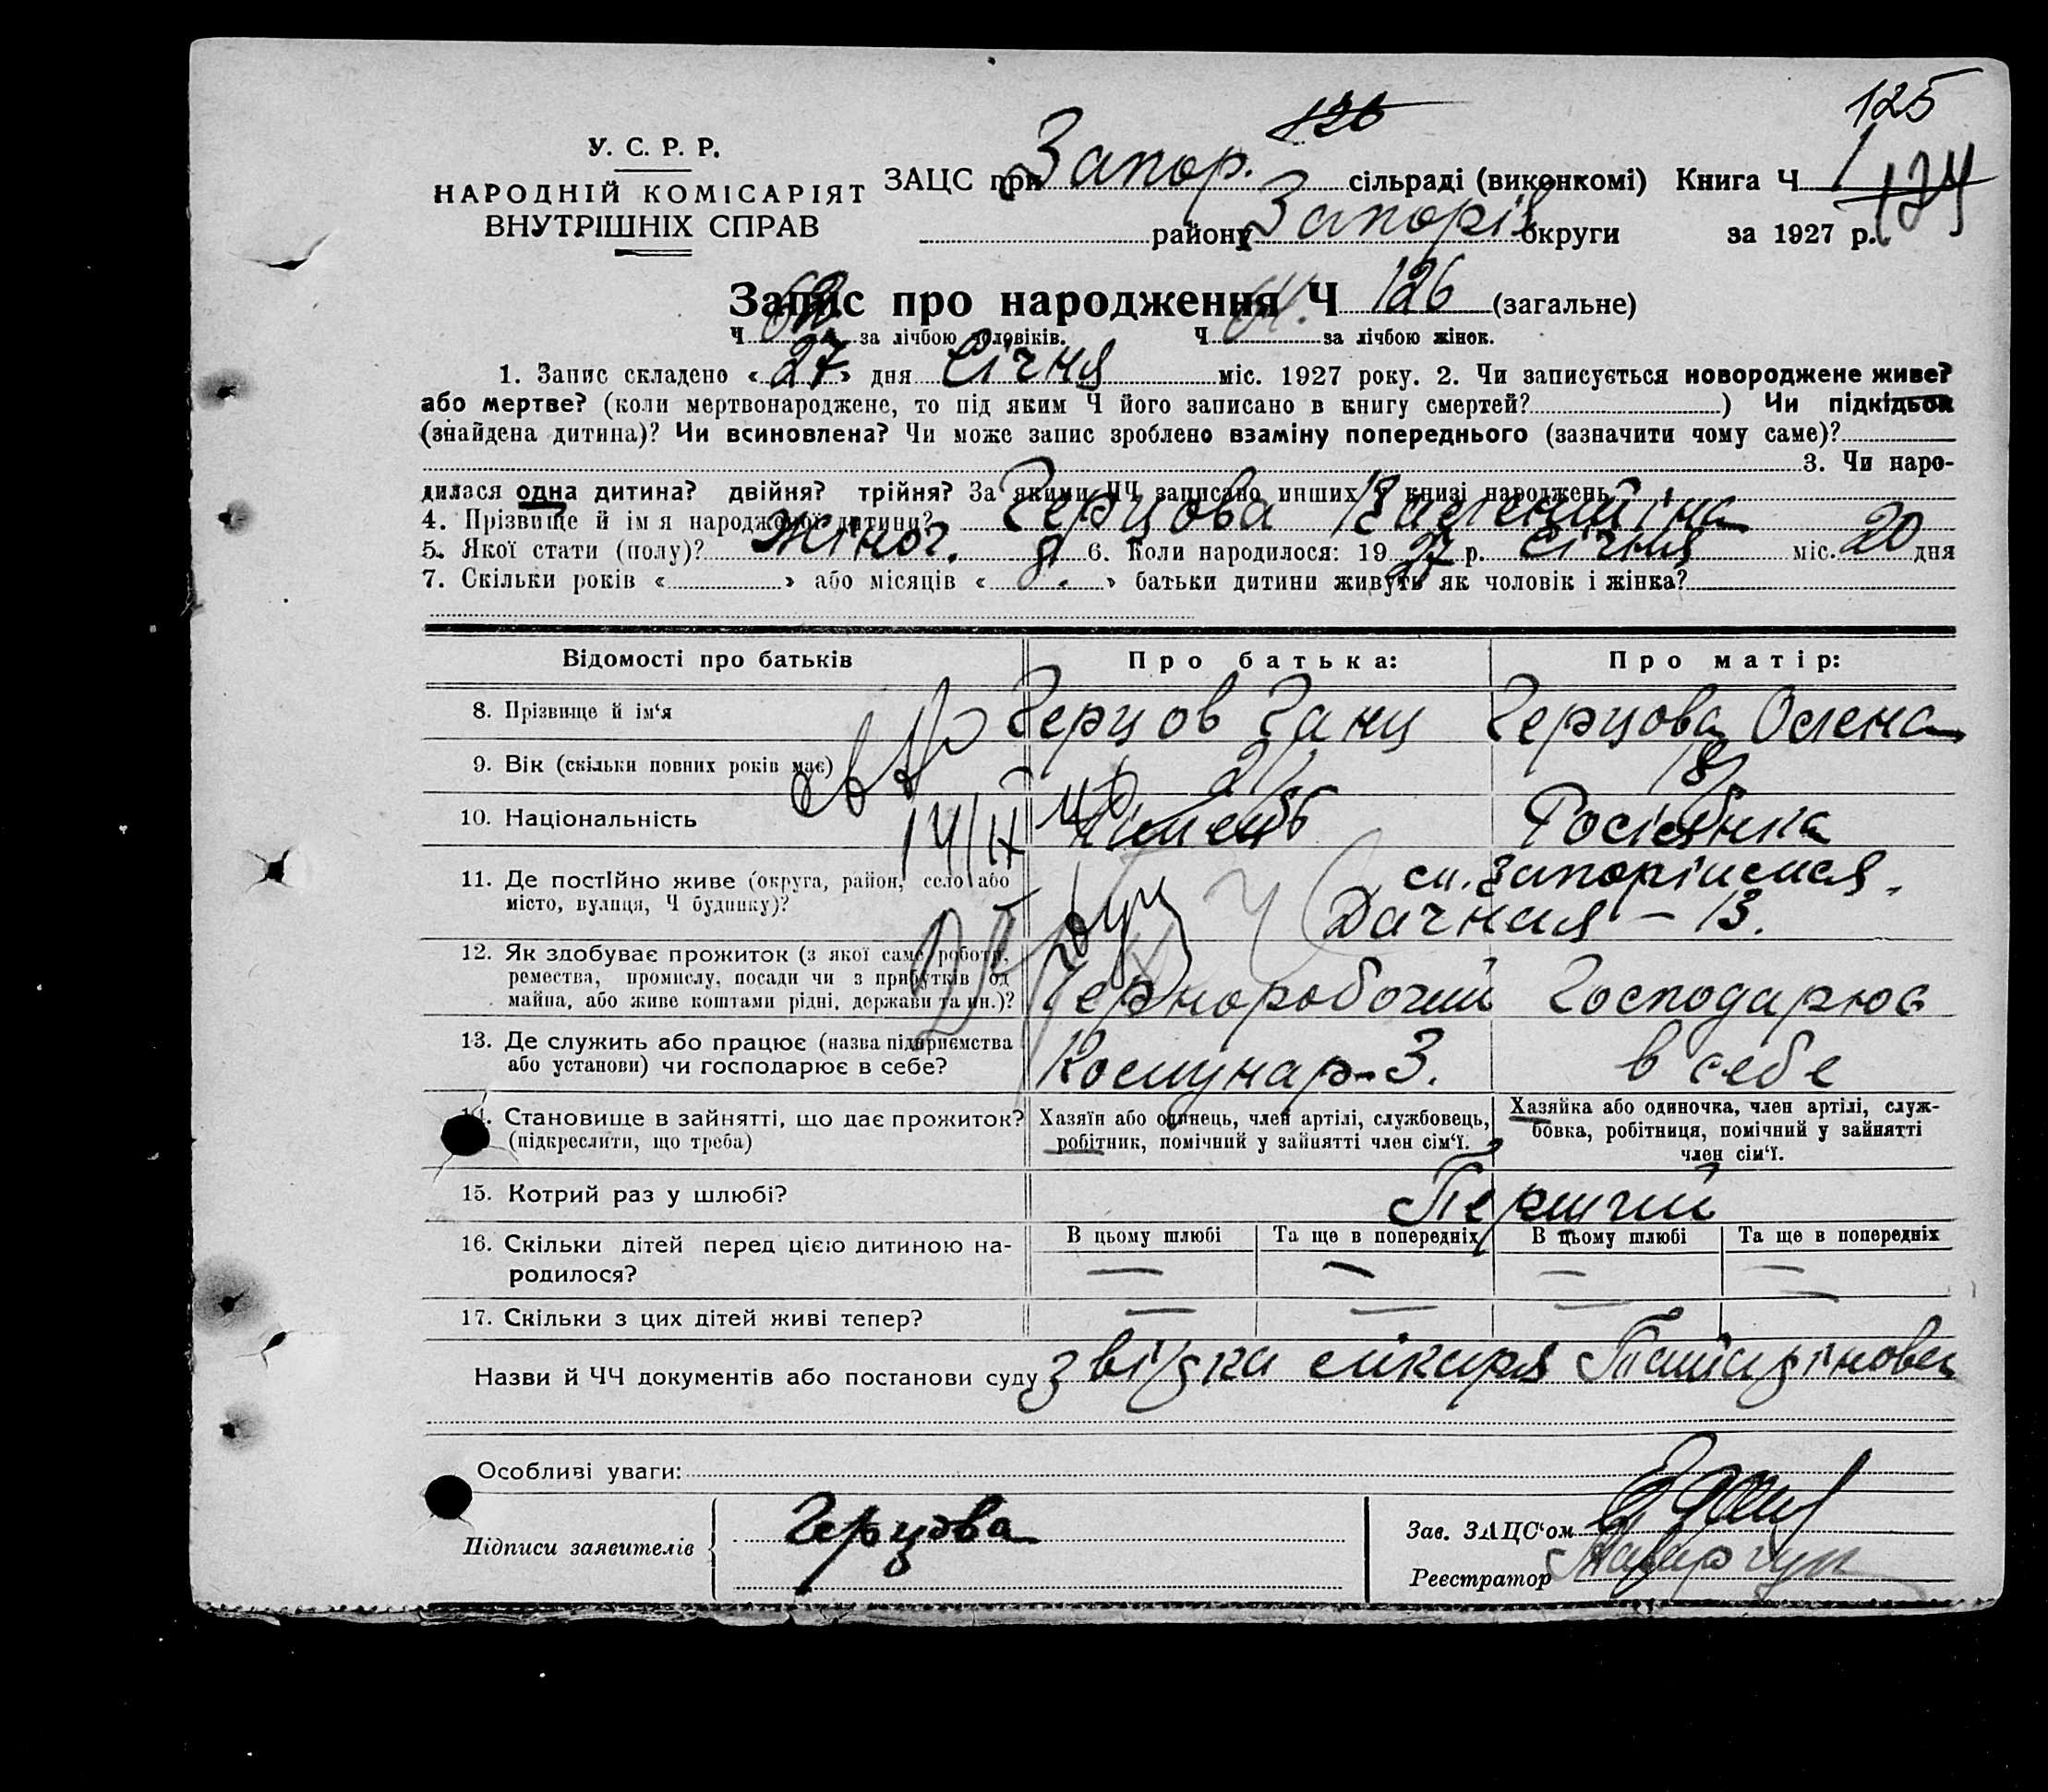 125
126
У. С. Р. Р.
НАРОДНІЙ КОМІСАРІЯТ
ВНУТРІШНІХ СПРАВ
ЗАЦС при Запор. сільраді (виконкомі) Книга Ч 1
124
району Запоріз округи за 1927 р.
Запис про народження Ч 126 (загальне)
Ч 62 за лічбою чоловіків. Ч 64. за лічбою жінок.
1. Запис складено « 27 » дня Січня міс. 1927 року. 2. Чи записується новороджене живе?
або мертве? (коли мертвонароджене, то під яким Ч його записано в книгу смертей? ) Чи підкідьок
(знайдена дитина)? Чи всиновлена? Чи може запис зроблено взаміну попереднього (зазначити чому саме)?
3. Чи наро-
дилася одна дитина? двійня? трійня? За якими ЧЧ записано инших у книзі народжень
4. Прізвище й ім я народженої дитини? Герцова Валентіна
5. Якої стати (полу)? Жіноч. 6. Коли народилося: 19 27 р. Січня міс. 20 дня
7. Скільки років « » або місяців « 8. » батьки дитини живуть як чоловік і жінка?
Відомості про батьків Про батька: Про матір:
8. Прізвище й ім‘я Герцов Ганц Герцова Олена
9. Вік (скільки повних років має) 21 18
10. Національність Німець Росіянка
14/IX
11. Де постійно живе (округа, район, село або
місто, вулиця, Ч будинку)? ст. Запоріжжя,
Дачная – 13.
12. Як здобуває прожиток (з якої саме роботи,
ремества, промислу, посади чи з прибутків од
майна, або живе коштами рідні, держави та ин.)? Чорноробочий Господарює
13. Де служить або працює (назва підприємства
або установи) чи господарює в себе? Комунар-З. в себе
14. Становище в зайнятті, що дає прожиток?
(підкреслити, що треба)
Хазяїн або одинець, член артілі, службовець,
робітник, помічний у зайнятті член сім‘ї.
Хазяйка або одиночка, член артілі, служ-
бовка, робітниця, помічний у зайнятті
член сім‘ї.
15. Котрий раз у шлюбі? Перший
16. Скільки дітей перед цією дитиною на-
родилося?
В цьому шлюбі Та ще в попередніх В цьому шлюбі Та ще в попередніх
— — — —
17. Скільки з цих дітей живі тепер? — — — —
Назви й ЧЧ документів або постанови суду звістка лікаря
Особливі уваги:
Підписи заявителів Герцова
Зав. ЗАЦС‘ом
Реєстратор